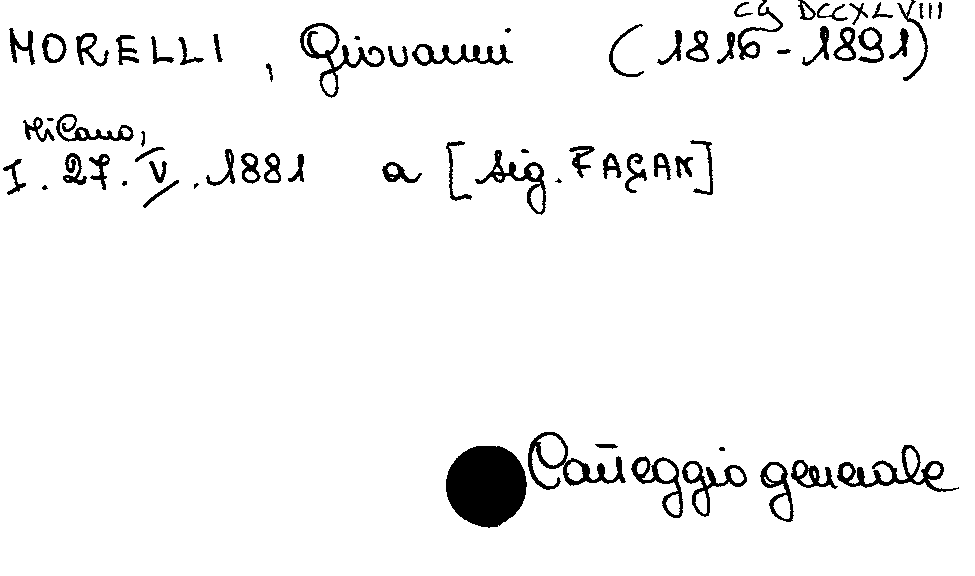 CG DCCXLVIII
MORELLI, Giovanni (1816-1891)
Milano,
I. 27. V. 1881 a [sig. FAGAN]
Carteggio generale